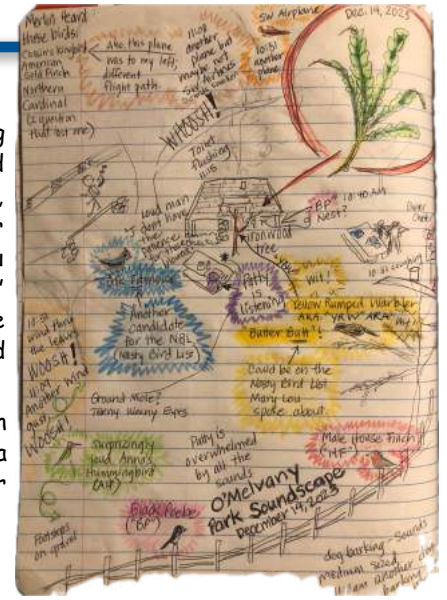 Merlin Heard
these birds:
Cassin's Kingbird
American
Gold Finch
Northern
Cardinal
(I question
that last one)
also this plane
was to my left;
different
flight path.
11:09
another
plane but
maybe not
SW Airlines
SW Airplane
10:31
another
plane.
Dec. 14, 2025
WHOOSH!
Toilet
flushing
11:15
Loud man
"I don't have
the
"BP"
Nest?
10:40 AM
Ironwood
Tree
Patty
is
Listening
Wit!
Yellow Rumped Warbler
AKA "YRW" AKA
"Butter Butt"!
Another
candidate
for the NBL
(Nasty Bird List)
Could be on the
Nasty Bird List
Mary Lou
spoke about.
10:31
wind thru
the leaves
WOOSH!
11:09
Another wind
gust
WOOSH!
Ground Mole?
Teeny Weeny Eyes
Surprizingly
loud Anna's
Hummingbird
(AH)
Patty is
overwhelmed
by all the
sounds
Male House Finch
("HF")
O'Melvany
Park Soundscape
December 14, 2025
Black Phoebe
("BP")
Footsteps
on gravel
dog barking - sounds
medium sized
another dog
barking